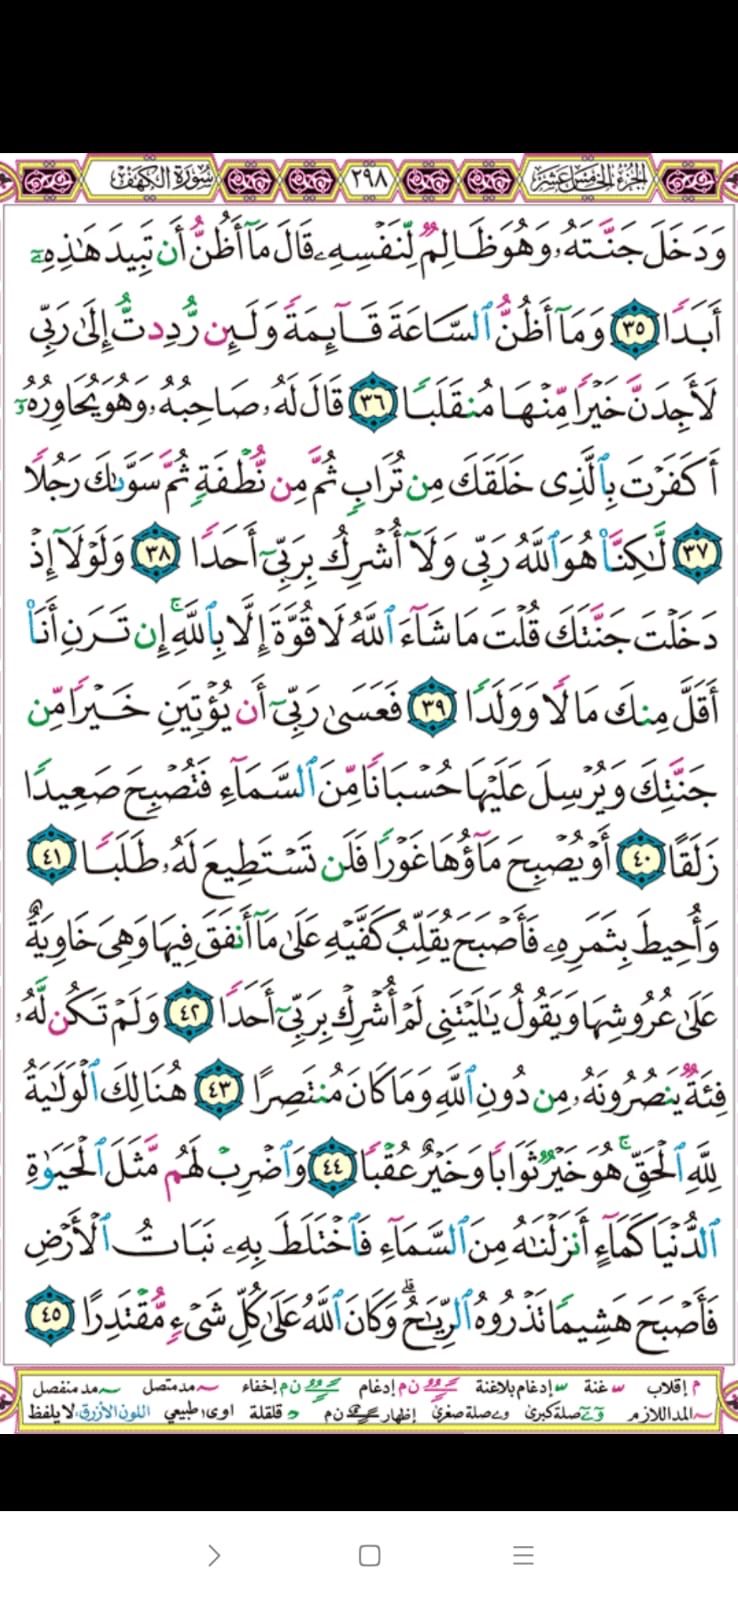 الجزء الخامس عشر ٢٩٨ سورة الكهف
وَدَخَلَ جَنَّتَهُۥ وَهُوَ ظَالِمٌ لِّنَفْسِهِۦ قَالَ مَآ أَظُنُّ أَن تَبِيدَ هَٰذِهِۦٓ
أَبَدًا ٣٥ وَمَآ أَظُنُّ ٱلسَّاعَةَ قَآئِمَةً وَلَئِن رُّدِدتُّ إِلَىٰ رَبِّى
لَأَجِدَنَّ خَيْرًا مِّنْهَا مُنقَلَبًا ٣٦ قَالَ لَهُۥ صَاحِبُهُۥ وَهُوَ يُحَاوِرُهُۥٓ
أَكَفَرْتَ بِٱلَّذِى خَلَقَكَ مِن تُرَابٍ ثُمَّ مِن نُّطْفَةٍ ثُمَّ سَوَّىٰكَ رَجُلًا
٣٧ لَّٰكِنَّا۠ هُوَ ٱللَّهُ رَبِّى وَلَآ أُشْرِكُ بِرَبِّىٓ أَحَدًا ٣٨ وَلَوْلَآ إِذْ
دَخَلْتَ جَنَّتَكَ قُلْتَ مَا شَآءَ ٱللَّهُ لَا قُوَّةَ إِلَّا بِٱللَّهِ ۚ إِن تَرَنِ أَنَا۠
أَقَلَّ مِنكَ مَالًا وَوَلَدًا ٣٩ فَعَسَىٰ رَبِّىٓ أَن يُؤْتِيَنِ خَيْرًا مِّن
جَنَّتِكَ وَيُرْسِلَ عَلَيْهَا حُسْبَانًا مِّنَ ٱلسَّمَآءِ فَتُصْبِحَ صَعِيدًا
زَلَقًا ٤٠ أَوْ يُصْبِحَ مَآؤُهَا غَوْرًا فَلَن تَسْتَطِيعَ لَهُۥ طَلَبًا ٤١
وَأُحِيطَ بِثَمَرِهِۦ فَأَصْبَحَ يُقَلِّبُ كَفَّيْهِ عَلَىٰ مَآ أَنفَقَ فِيهَا وَهِىَ خَاوِيَةٌ
عَلَىٰ عُرُوشِهَا وَيَقُولُ يَٰلَيْتَنِى لَمْ أُشْرِكْ بِرَبِّىٓ أَحَدًا ٤٢ وَلَمْ تَكُن لَّهُۥ
فِئَةٌ يَنصُرُونَهُۥ مِن دُونِ ٱللَّهِ وَمَا كَانَ مُنتَصِرًا ٤٣ هُنَالِكَ ٱلْوَلَٰيَةُ
لِلَّهِ ٱلْحَقِّ ۚ هُوَ خَيْرٌ ثَوَابًا وَخَيْرٌ عُقْبًا ٤٤ وَٱضْرِبْ لَهُم مَّثَلَ ٱلْحَيَوٰةِ
ٱلدُّنْيَا كَمَآءٍ أَنزَلْنَٰهُ مِنَ ٱلسَّمَآءِ فَٱخْتَلَطَ بِهِۦ نَبَاتُ ٱلْأَرْضِ
فَأَصْبَحَ هَشِيمًا تَذْرُوهُ ٱلرِّيَٰحُ ۗ وَكَانَ ٱللَّهُ عَلَىٰ كُلِّ شَىْءٍ مُّقْتَدِرًا ٤٥
م إقلاب غنة إدغام بلاغنة ن م إدغام ن م إخفاء مد متصل مد منفصل
المد اللازم صلة كبرى صلة صغرى إظهار ن م قلقلة اوى طبيعي اللون الأزرق لا يلفظ